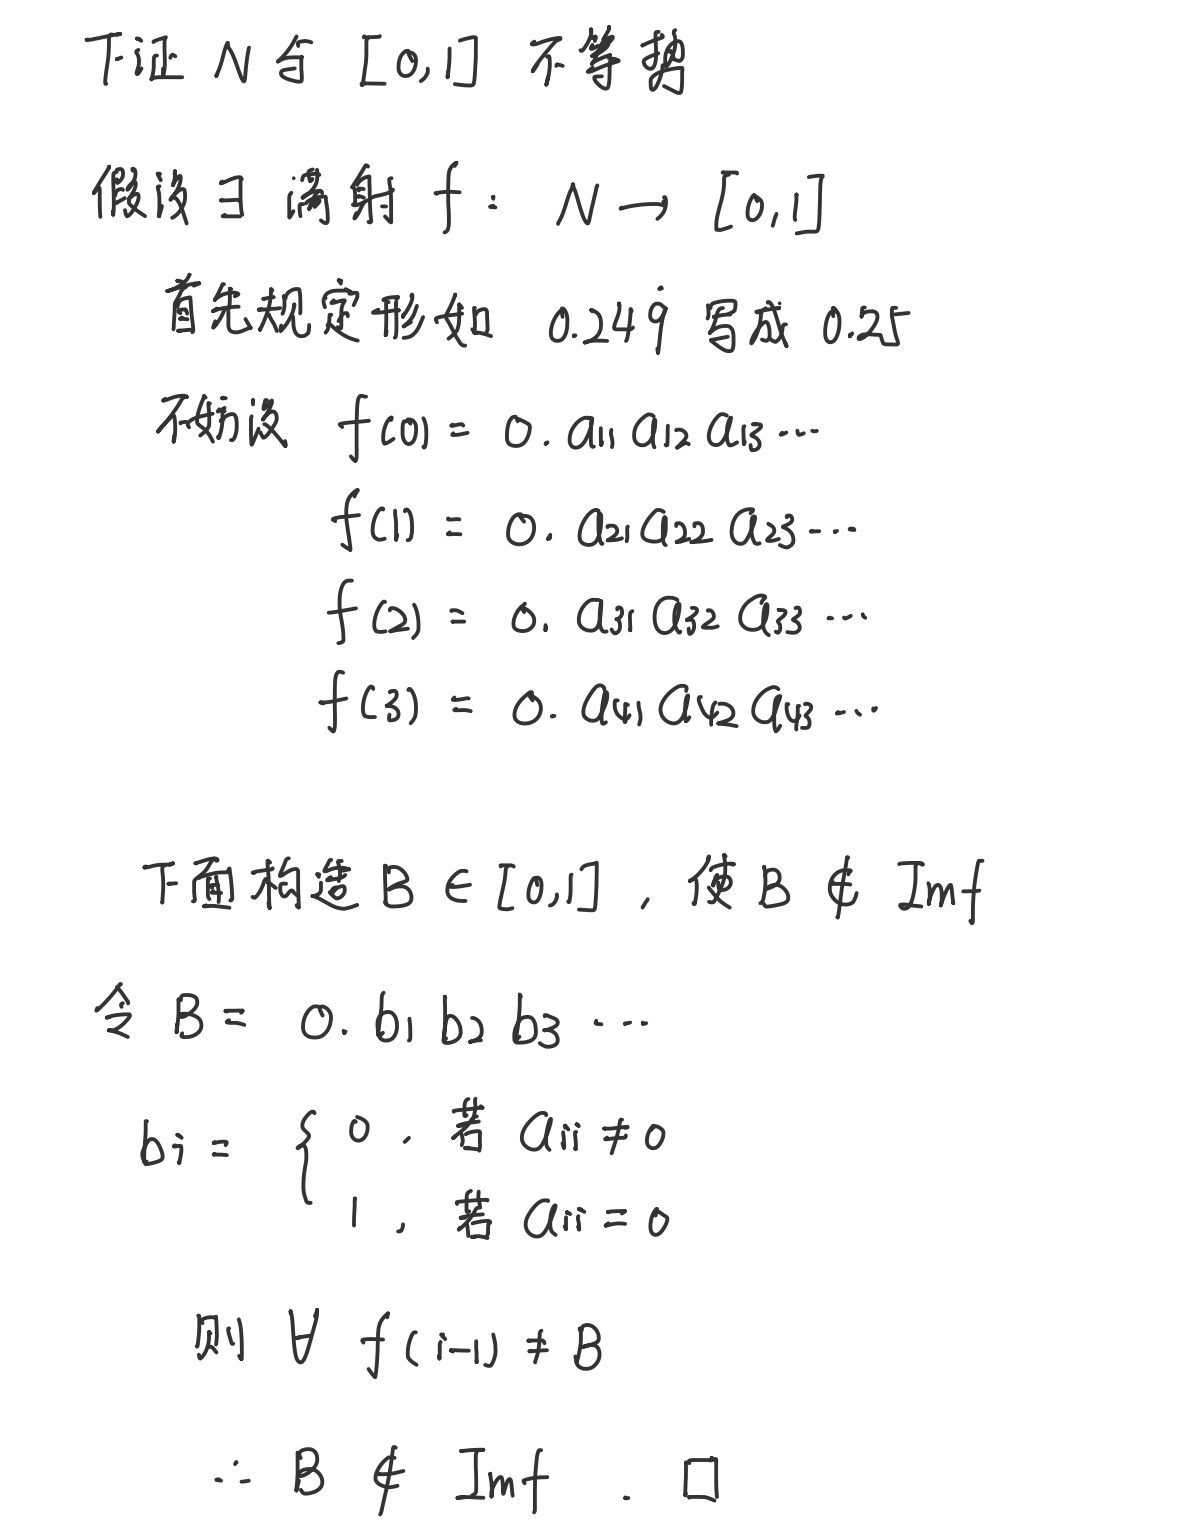 下证 N 与 [0,1] 不等势
假设 ∃ 满射 f: N → [0,1]
首先规定形如 0.249̇ 写成 0.25
不妨设 f(0) = 0. a₁₁ a₁₂ a₁₃ ⋯
f(1) = 0. a₂₁ a₂₂ a₂₃ ⋯
f(2) = 0. a₃₁ a₃₂ a₃₃ ⋯
f(3) = 0. a₄₁ a₄₂ a₄₃ ⋯
下面构造 B ∈ [0,1] , 使 B ∉ Imf
令 B = 0. b₁ b₂ b₃ ⋯
bᵢ = { 0 , 若 aᵢᵢ ≠ 0
1 , 若 aᵢᵢ = 0
则 ∀ f(i-1) ≠ B
∴ B ∉ Imf . □